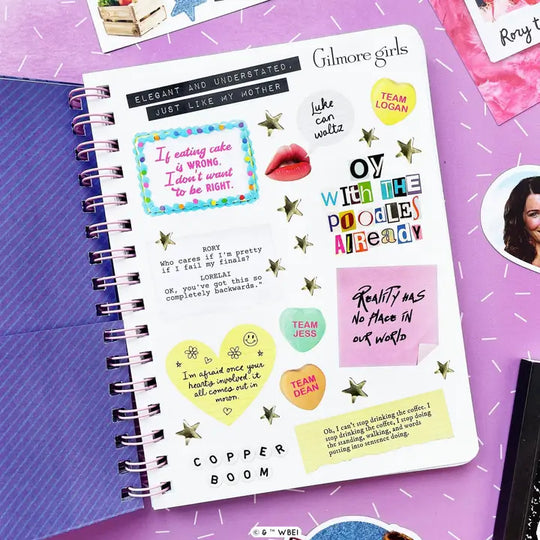 Gilmore girls
ELEGANT AND UNDERSTATED,
JUST LIKE MY MOTHER
Luke
can
waltz
TEAM
LOGAN
If eating cake
is WRONG,
I don't want
to be RIGHT.
OY
WITH THE
POODLES
AlREADY
RORY
Who cares if I'm pretty
if I fail my finals?
LORELAI
OK, you've got this so
completely backwards."
REALITY HAS
NO PLACE IN
OUR WORLD
TEAM
JESS
TEAM
DEAN
I'm afraid once your
heart is involved, it
all comes out in
moron.
Oh, I can't stop drinking the coffee. I
stop drinking the coffee, I stop doing
the standing, walking, and words
putting into sentence doing.
COPPER
BOOM
Rory t
© & ™ WBEI